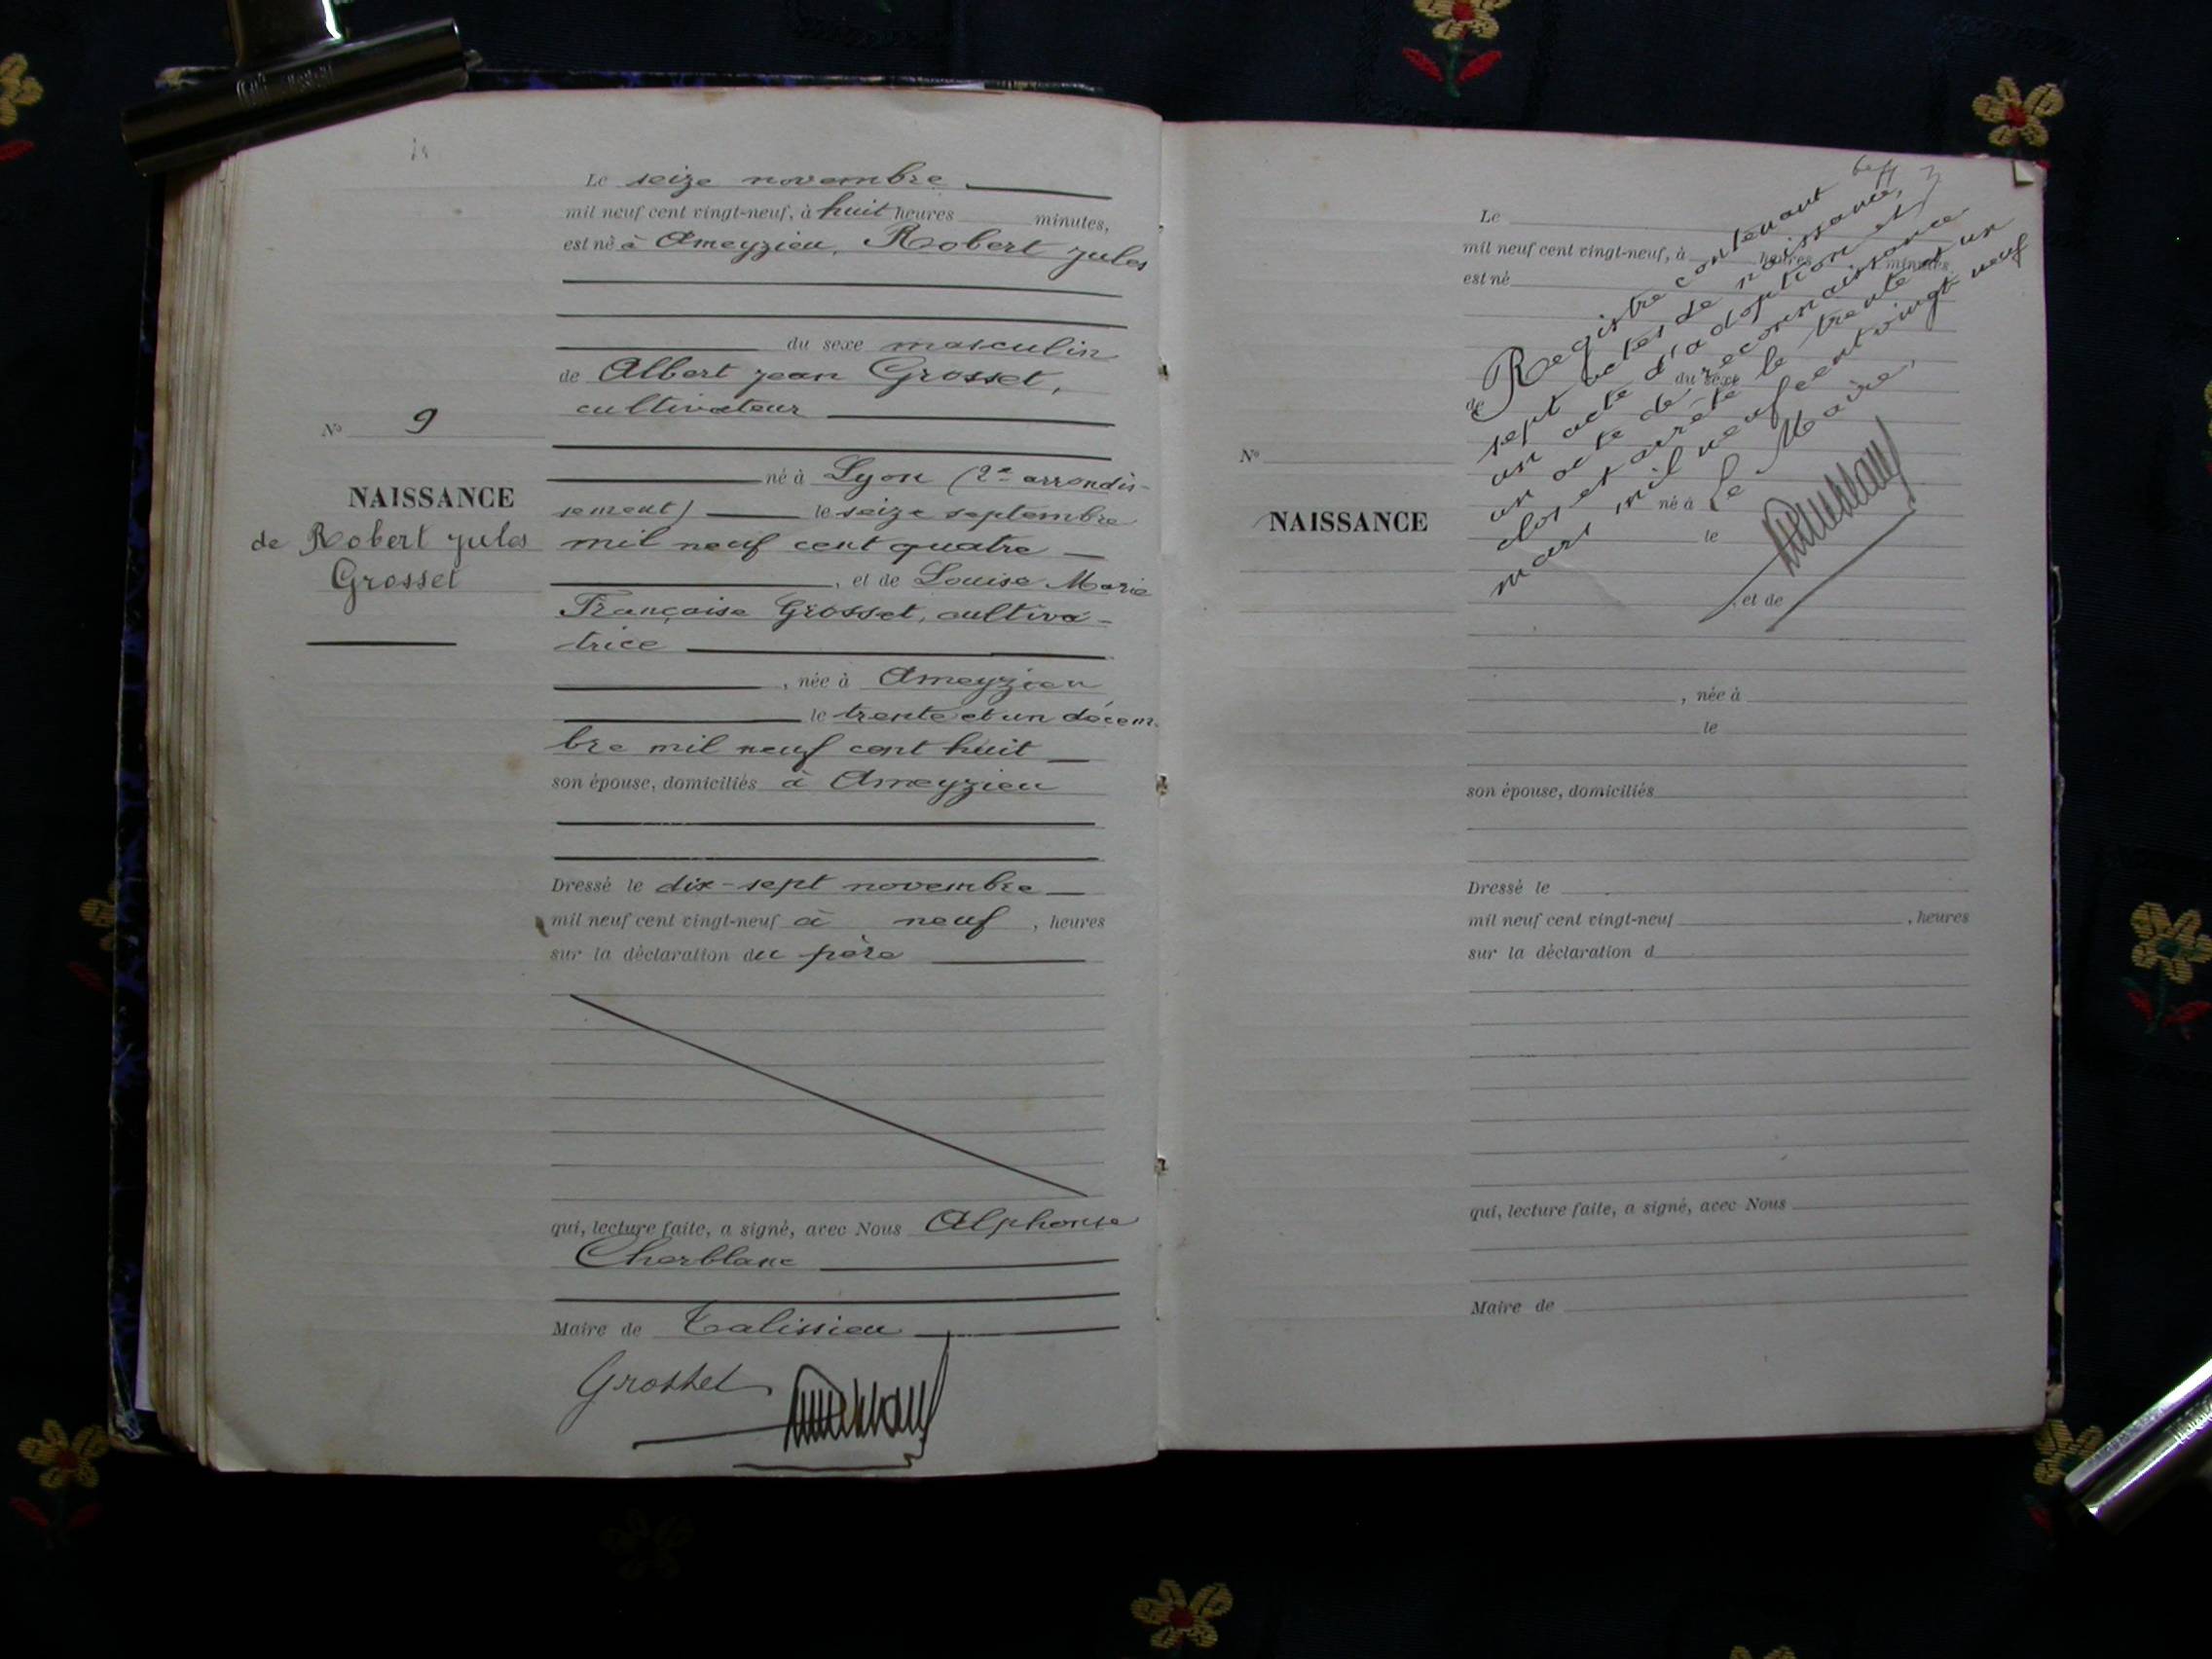 Le seize novembre
mil neuf cent vingt-neuf, à huit heures minutes,
est né à Ameyzieu, Robert Jules
du sexe masculin
de Albert Jean Grosset,
cultivateur
né à Lyon (2e arrondis-
sement) le seize septembre
mil neuf cent quatre
, et de Louise Marie
Françoise Grosset, cultiva-
trice
, née à Ameyzieu
le trente et un décem-
bre mil neuf cent huit
son épouse, domiciliés à Ameyzieu
Dressé le dix-sept novembre
mil neuf cent vingt-neuf à neuf, heures
sur la déclaration du père
qui, lecture faite, a signé, avec Nous Alphonse
Cherblanc
Maire de Talissieu
Grosset
No 9
NAISSANCE
de Robert Jules
Grosset
Le
mil neuf cent vingt-neuf, à heures minutes,
est né
du sexe
de
né à
le
, et de
, née à
le
son épouse, domiciliés
Dressé le
mil neuf cent vingt-neuf , heures
sur la déclaration d
qui, lecture faite, a signé, avec Nous
Maire de
No
NAISSANCE
Registre contenant
sept actes de naissance,
un acte d'adoption et
un acte de reconnaissance
clos et arrêté le trente et un
mars mil neuf cent vingt neuf
Le Maire,